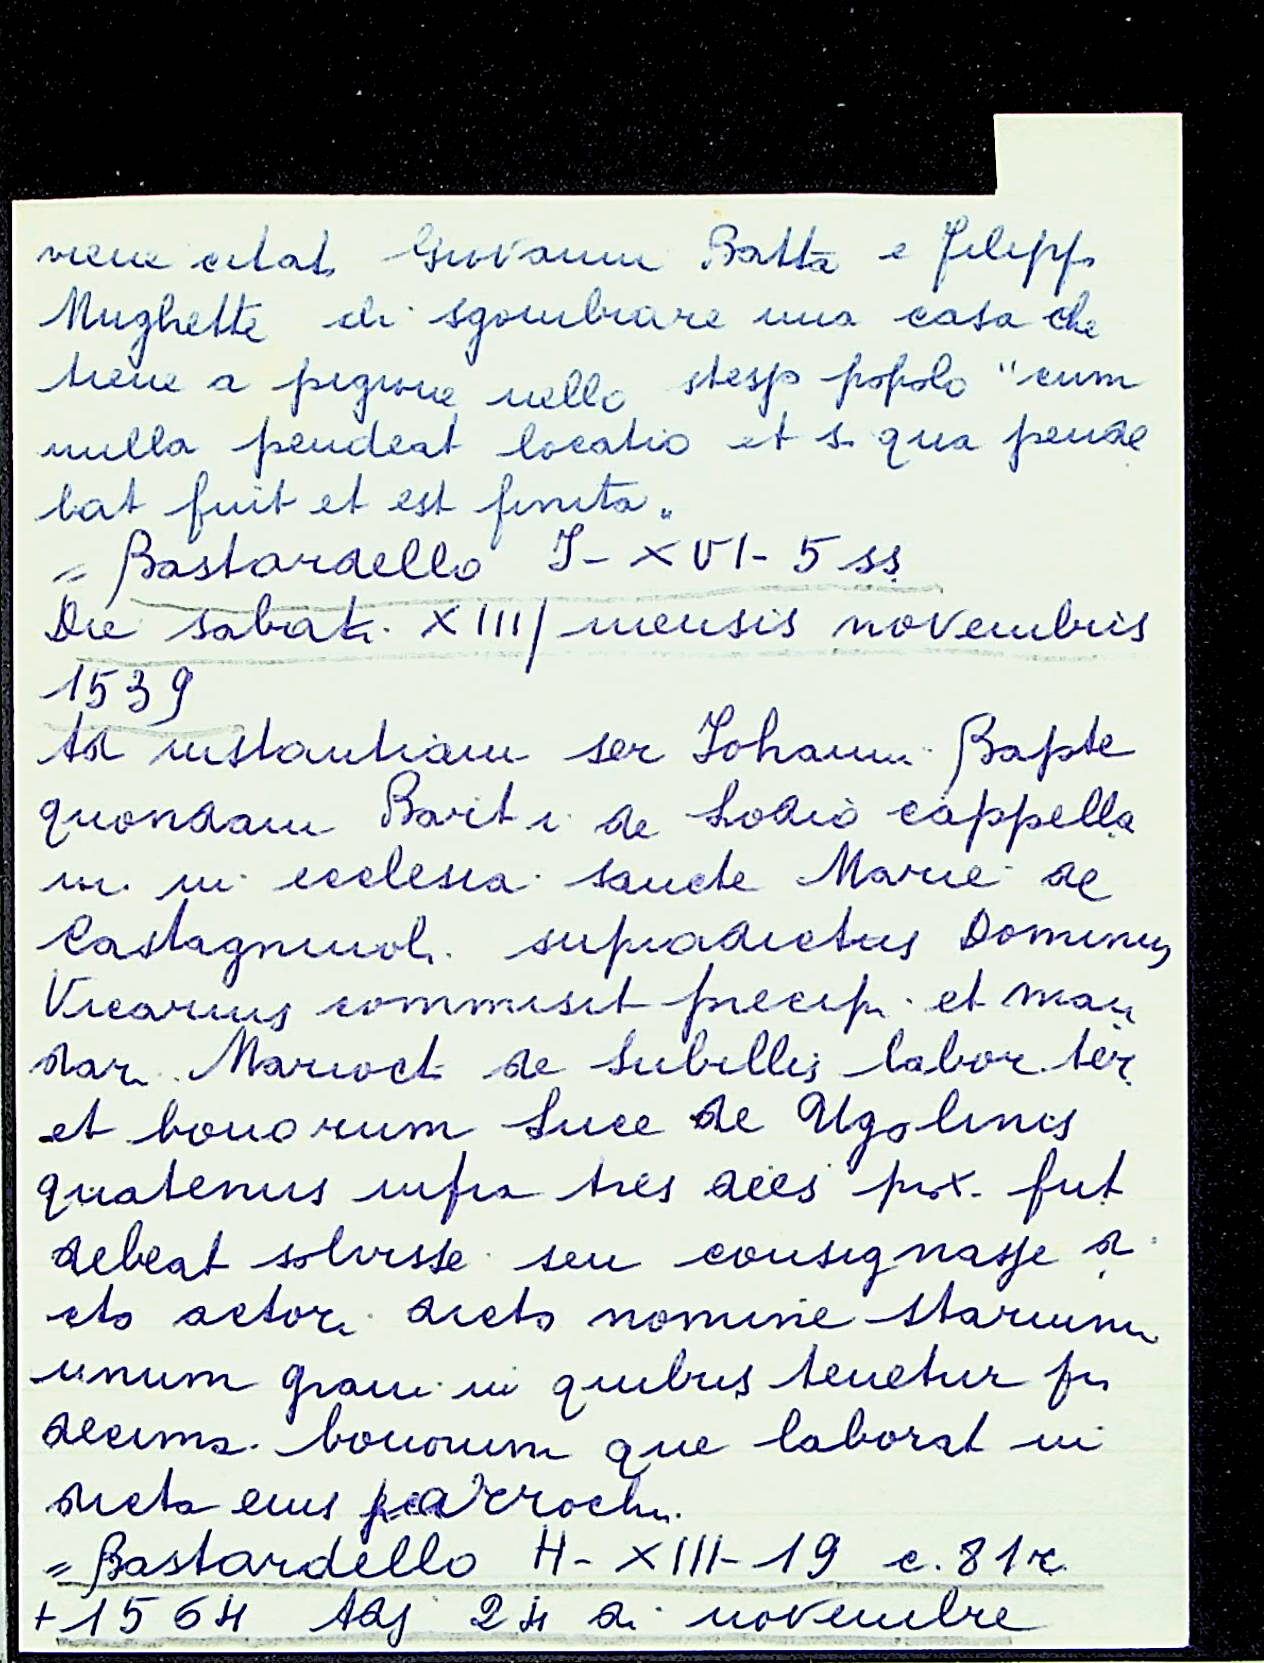 viene citato Giovanni Batta e Filippo
Mughette di sgombrare una casa che
tiene a pigione nello stesso popolo "cum
nulla pendeat locatio et si qua pende
bat fuit et est finita"
= Bastardello I - XVI - 5 ss
Die sabati XIII/ mensis novembris
1539
Ad instantiam ser Johanni Bapte
quondam Bart i de Lodio cappella
ni in ecclesia sancte Marie de
Castagninoli supradictus Dominus
Vicarius commisit precipi et man
dari Marioct de Lubillis labor. ter
et bonorum Luce de Ugolinis
quatenus infra tres dies prox. fut
debeat solvisse seu consignasse di
cto actori dicto nomine starium
unum grani in quibus tenetur pro
decima bonorum que laborat in
dicta eius parrochi.
= Bastardello H - XIII - 19 c. 81 r
+ 1564 Adj 24 di novembre